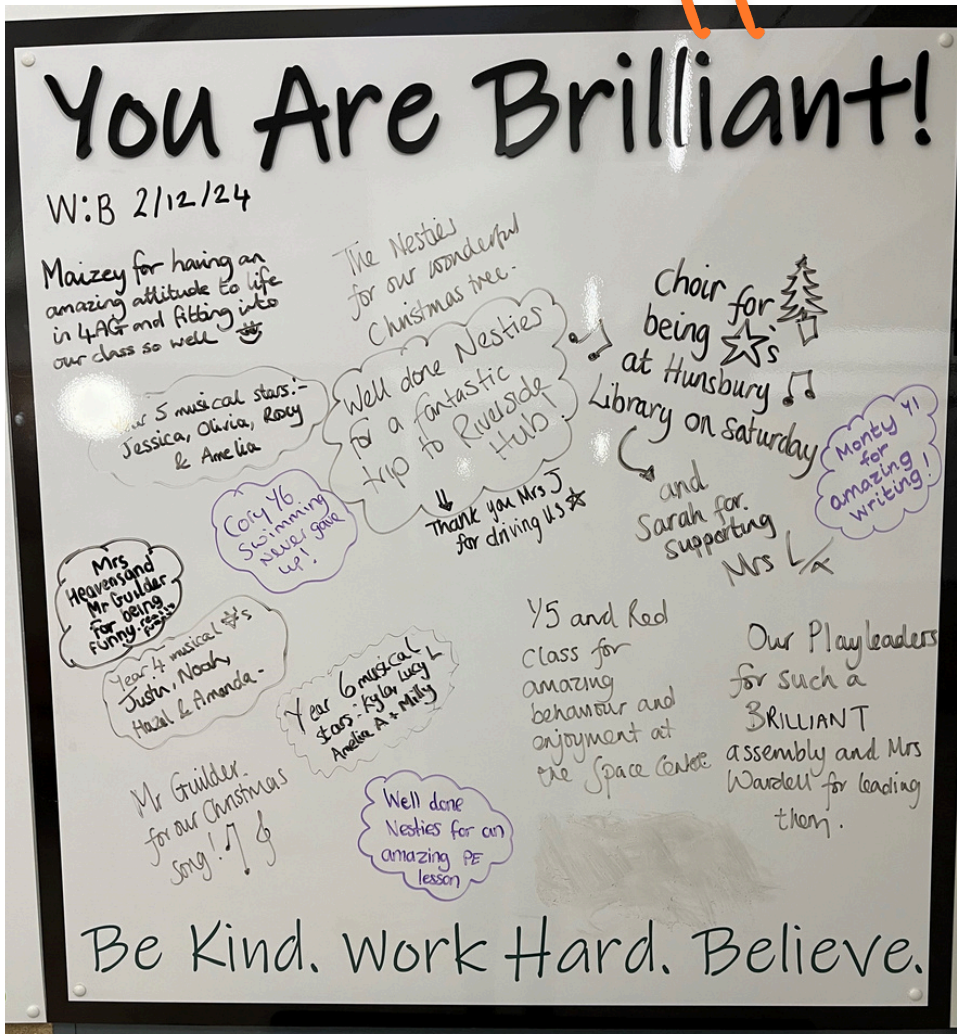 You Are Brilliant!
W:B 2/12/24
Maizey for having an
amazing attitude to life
in 4AG and fitting into
our class so well
The Nesties
for our wonderful
Christmas tree.
Choir for
being ☆'s
at Hunsbury
Library on Saturday
and
Sarah for
supporting
Mrs L/x
5 musical stars:-
Jessica, Olivia, Roxy
& Amelia
Well done Nesties
for a fantastic
trip to Riverside
Hub!
Thank you Mrs J
for driving us ☆
Monty Y1
for
amazing
writing!
Cory Y6
Swimming
never gave
up!
Mrs
Heavens and
Mr Guilder
for being
funny
Year 4 musical ☆'s
Justin, Noah,
Hazel & Amanda.
Year 6 musical
stars: Kyla, Lucy L
Amelia A + Milly
Y5 and Red
Class for
amazing
behaviour and
enjoyment at
the Space Centre
Our Playleaders
for such a
BRILLIANT
assembly and Mrs
Wardell for leading
them.
Mr Guilder
for our Christmas
song!
Well done
Nesties for an
amazing PE
lesson
Be Kind. Work Hard. Believe.